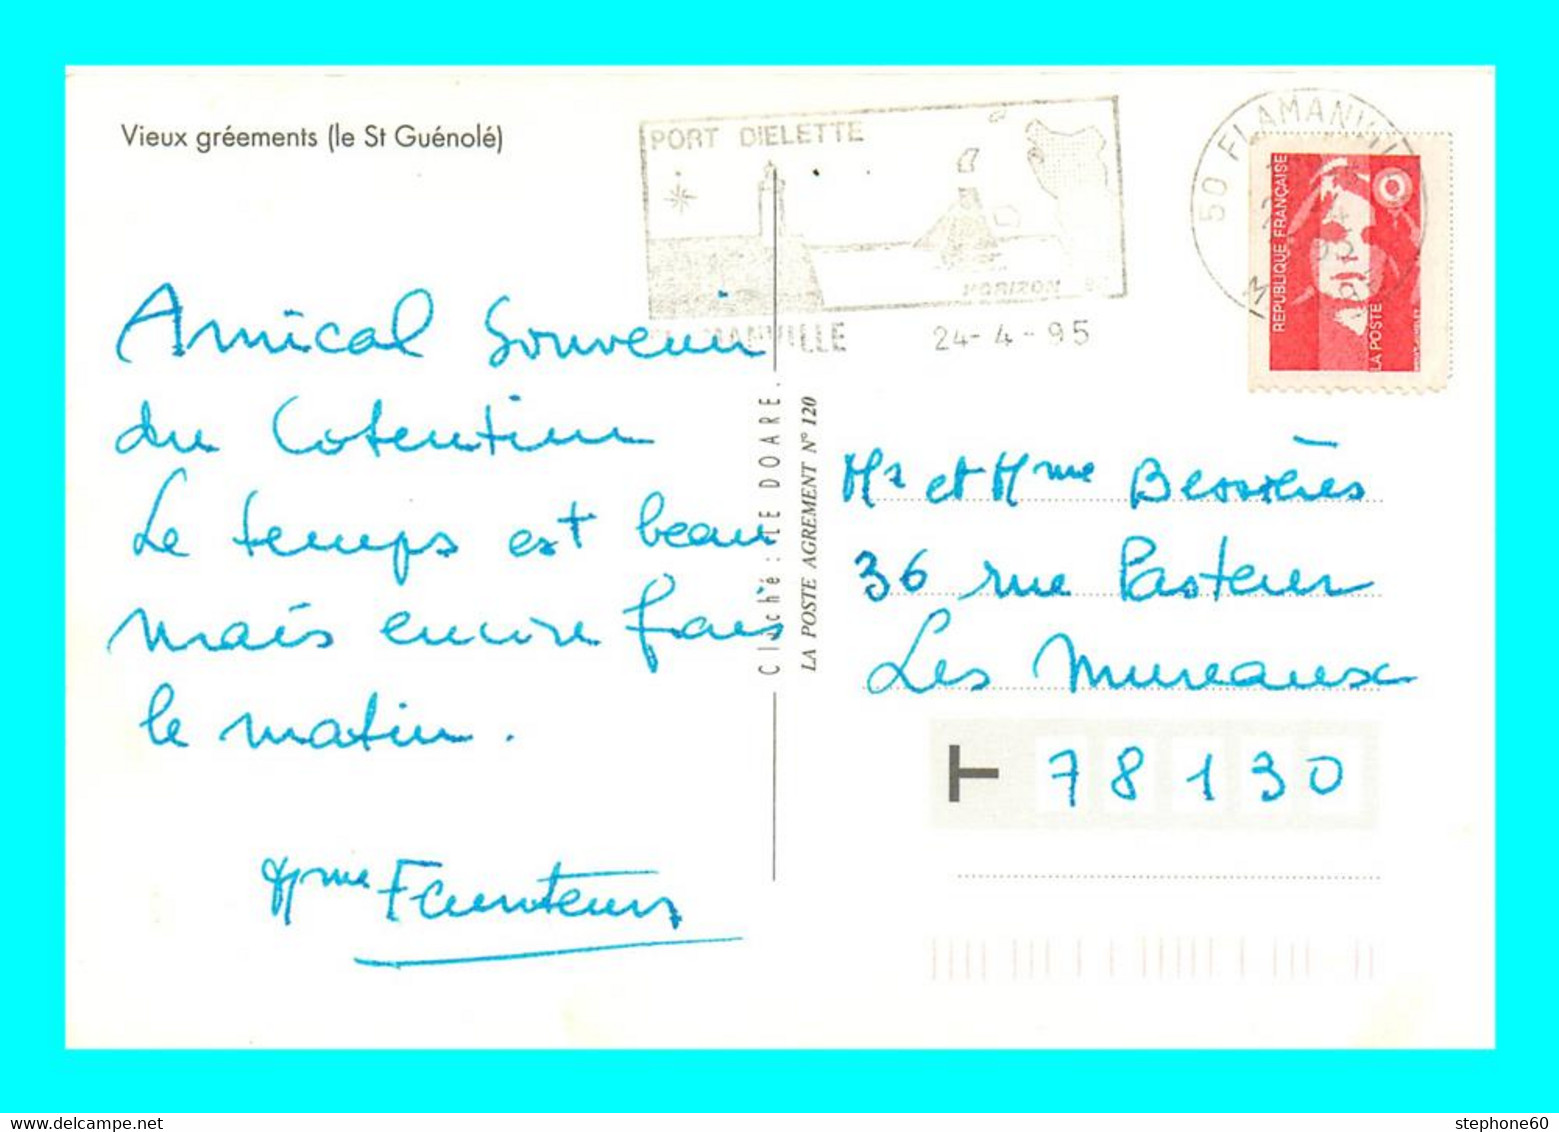 Vieux gréements (le St Guénolé)
PORT DIELETTE
HORIZON
24-4-95
50 FLAMANVILLE
REPUBLIQUE FRANÇAISE
LA POSTE
Amical souvenir
du Cotentin
Le temps est beau
mais encore frais
le matin.
Mme
Cliché : LE DOARE.
LA POSTE AGREMENT N° 120
Mr et Mme Bessières
36 rue Pasteur
Les Mureaux
T 78130
stephone60